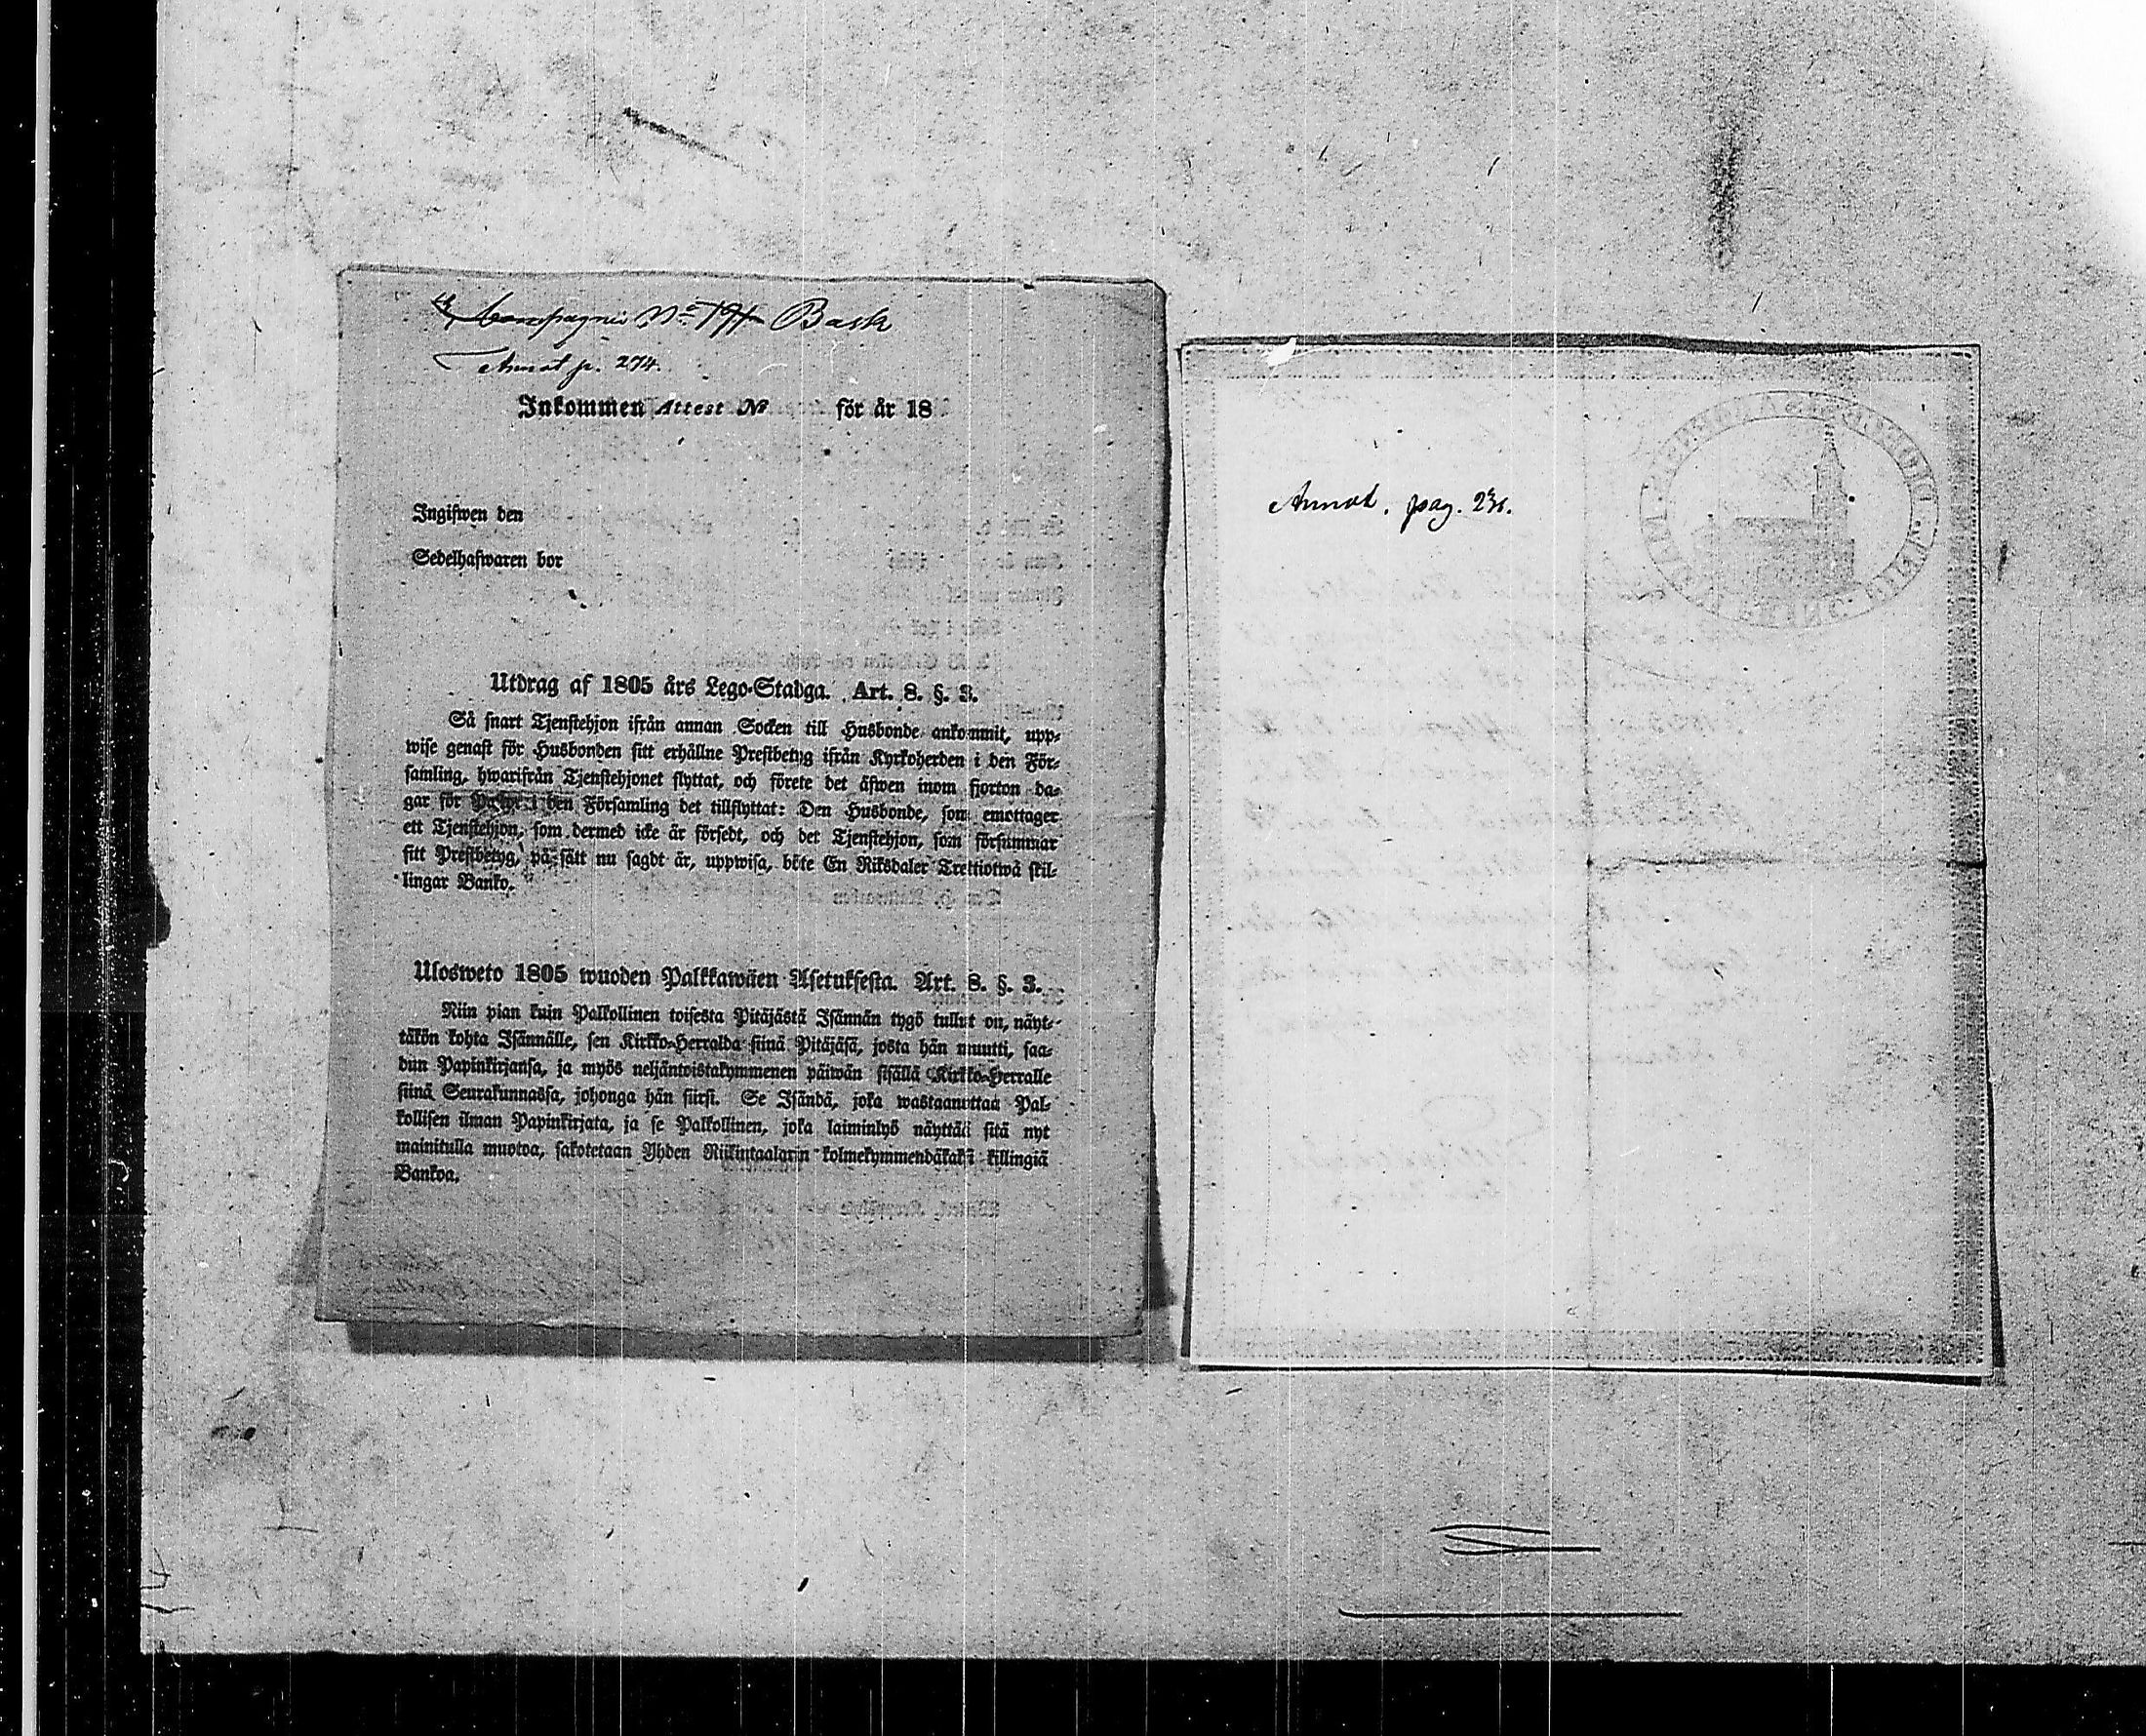 Compagnie No Bask
Annot p. 274.
Inkommen Attest No för år 18
Ingifwen den
Sedelhafwaren bor
Utdrag af 1805 års Lego-Stadga. Art. 8. §. 3.
Så snart Tjenstehjon ifrån annan Socken till Husbonde ankommit, upp-
wise genast för Husbonden sitt erhållne Prestbetyg ifrån Kyrkoherden i den För-
samling, hwarifrån Tjenstehjonet flyttat, och förete det äfwen inom fjorton da-
gar för Pastor i den Församling det tillflyttat: Den Husbonde, som emottager
ett Tjenstehjon, som dermed icke är försedt, och det Tjenstehjon, som försummar
sitt Prestbetyg, på sätt nu sagdt är, uppwisa, böte En Riksdaler Trettiotwå skil-
lingar Banko.
Ulosweto 1805 wuoden Palkkawäen Asetuksesta. Art. 8. §. 3.
Niin pian kuin Palkollinen toisesta Pitäjästä Isännän tygö tullut on, näyt-
täkön kohta Isännälle, sen Kirkko-Herralda siinä Pitäjäsä, josta hän muutti, saa-
dun Papinkirjansa, ja myös neljäntoistakymmenen päiwän sisällä Kirkko-Herralle
siinä Seurakunnassa, johonga hän siirsi. Se Isändä, joka wastaanottaa Pal-
kollisen ilman Papinkirjata, ja se Palkollinen, joka laiminlyö näyttää sitä nyt
mainitulla muotoa, sakotetaan Yhden Riikintaalarin kolmekymmendäkaksi killingiä
Bankoa.
Annot. pag.